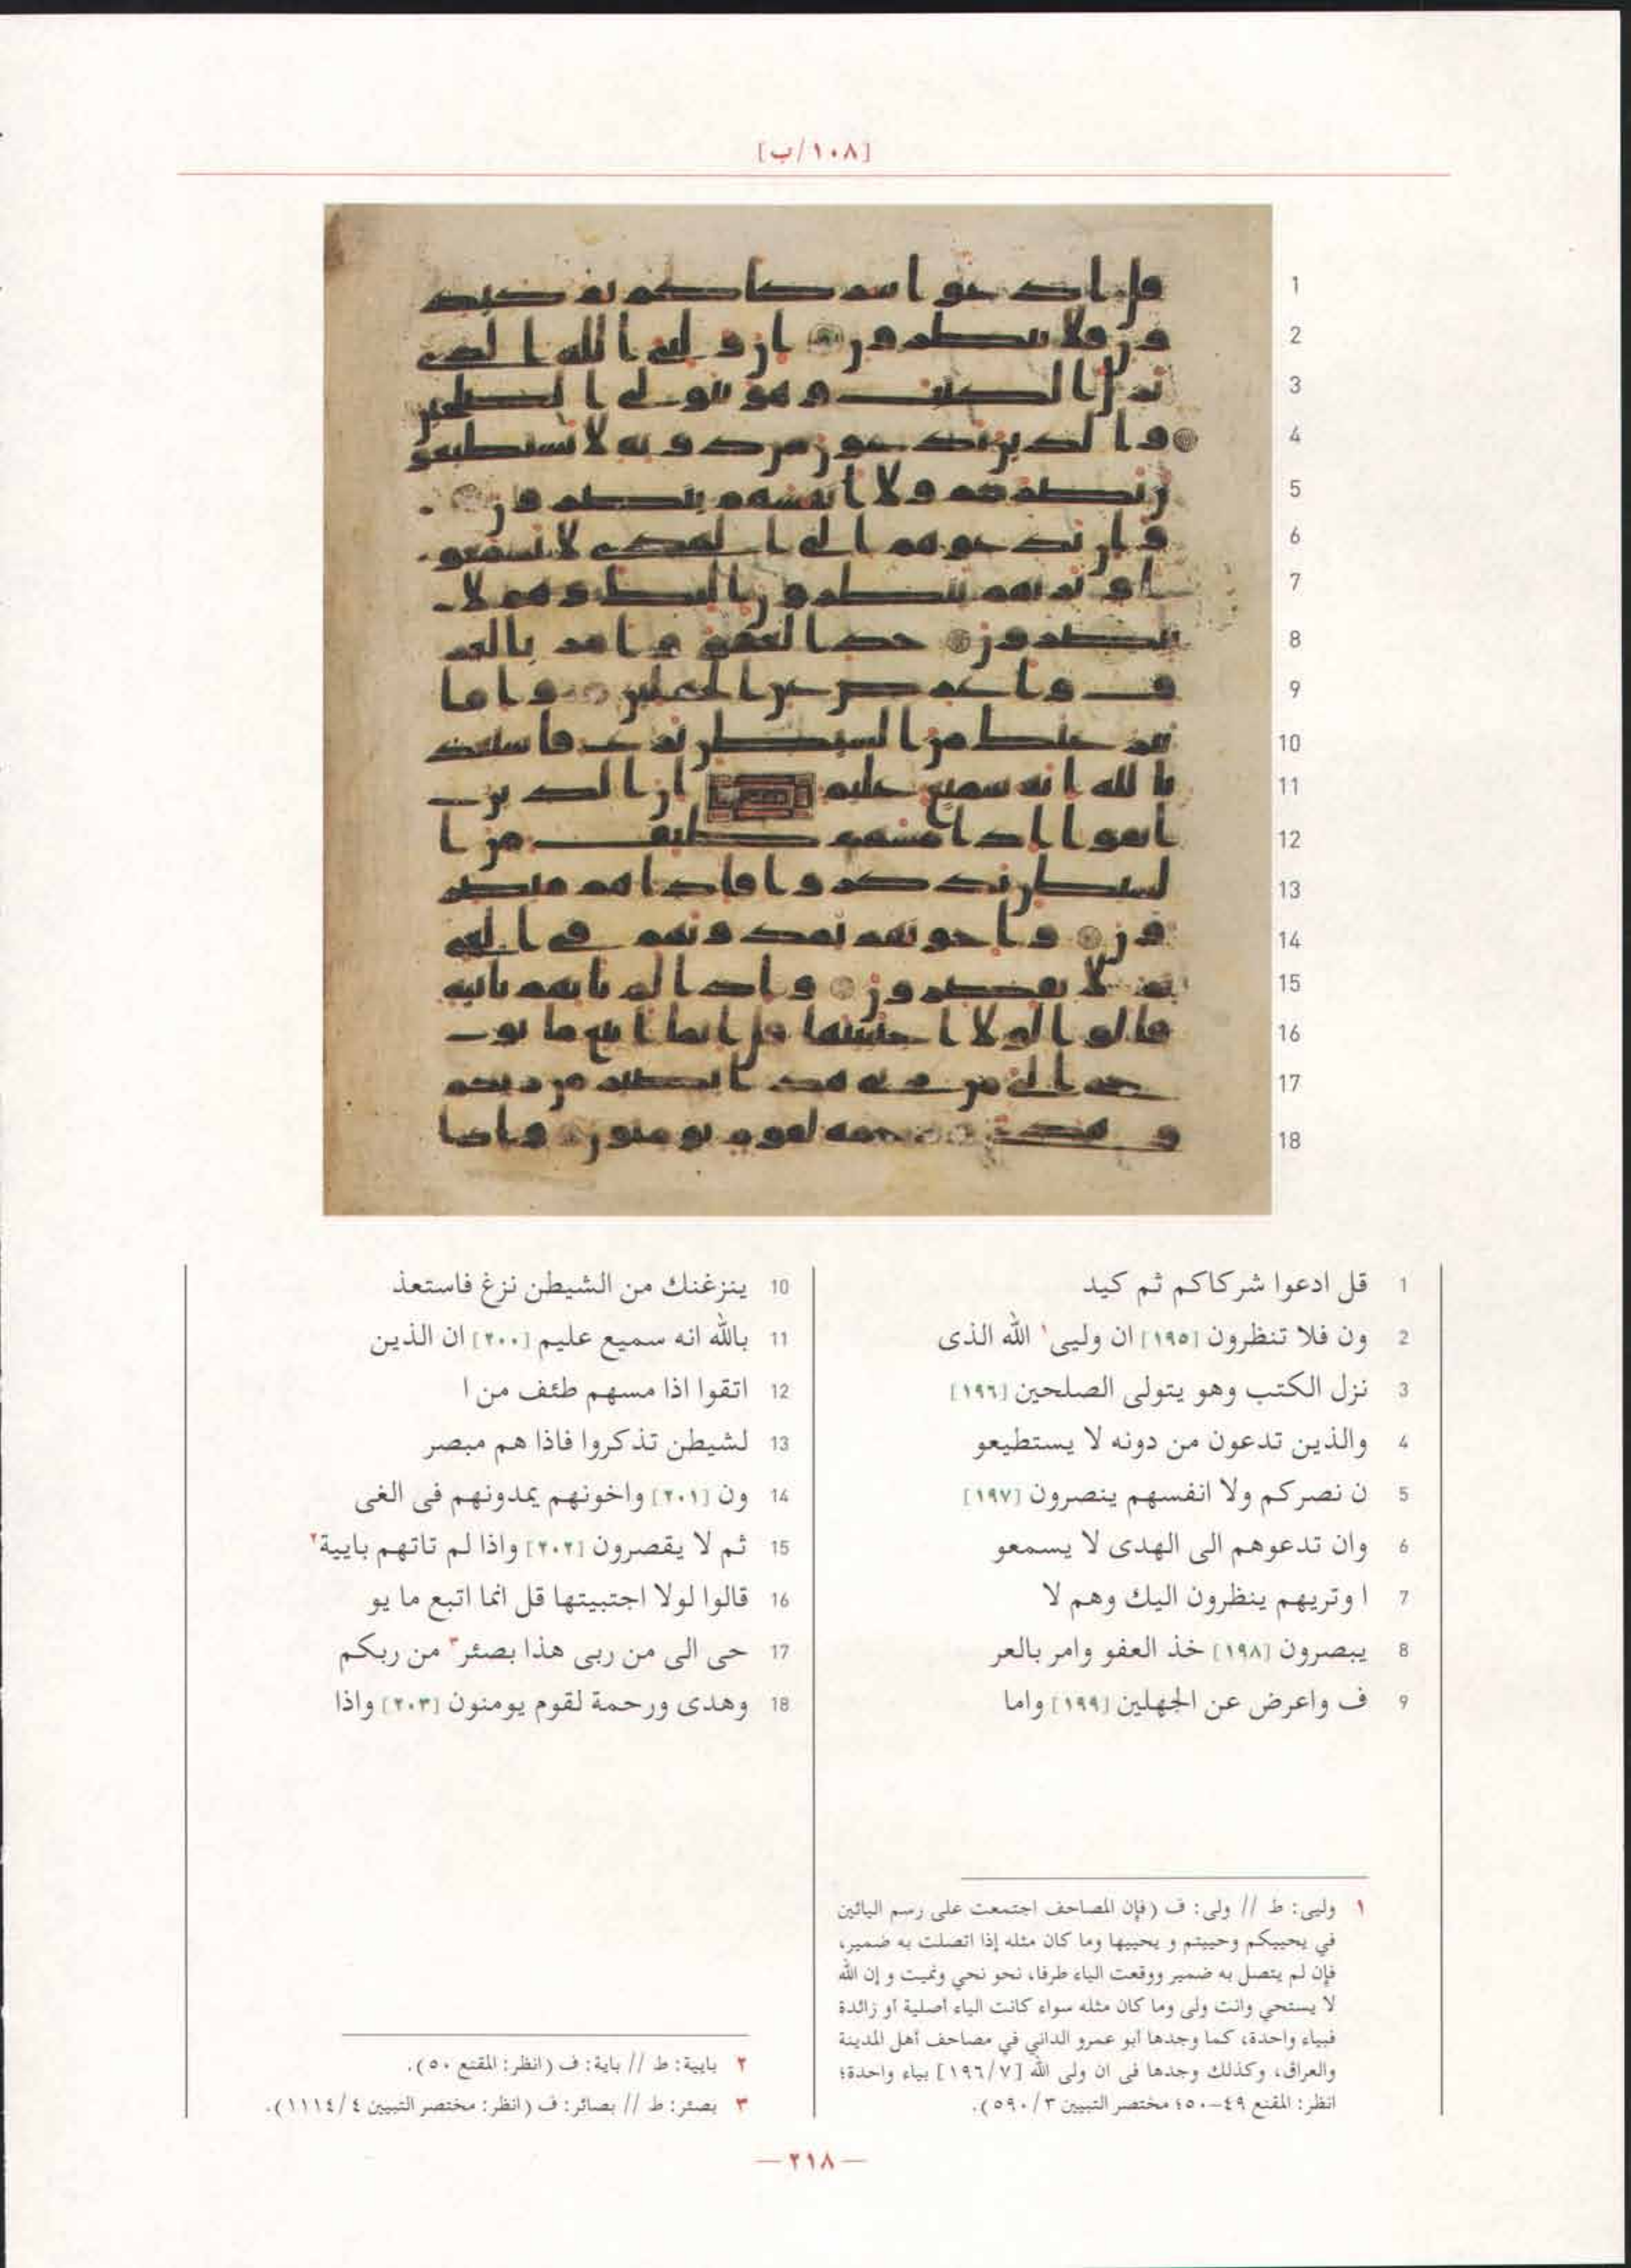 [١٠٨/ب]
1
2
3
4
5
6
7
8
9
10
11
12
13
14
15
16
17
18
1 قل ادعوا شركاكم ثم كيد
2 ون فلا تنظرون [١٩٥] ان وليى١ الله الذى
3 نزل الكتب وهو يتولى الصلحين [١٩٦]
4 والذين تدعون من دونه لا يستطيعو
5 ن نصركم ولا انفسهم ينصرون [١٩٧]
6 وان تدعوهم الى الهدى لا يسمعو
7 ا وتريهم ينظرون اليك وهم لا
8 يبصرون [١٩٨] خذ العفو وامر بالعر
9 ف واعرض عن الجهلين [١٩٩] واما
10 ينزغنك من الشيطن نزغ فاستعذ
11 بالله انه سميع عليم [٢٠٠] ان الذين
12 اتقوا اذا مسهم طئف من ا
13 لشيطن تذكروا فاذا هم مبصر
14 ون [٢٠١] واخونهم يمدونهم فى الغى
15 ثم لا يقصرون [٢٠٢] واذا لم تاتهم بايية٢
16 قالوا لولا اجتبيتها قل انما اتبع ما يو
17 حى الى من ربى هذا بصئر٣ من ربكم
18 وهدى ورحمة لقوم يومنون [٢٠٣] واذا
١ وليى: ط // ولى: ف (فإن المصاحف اجتمعت على رسم اليائين
في يحييكم وحييتم و يحييها وما كان مثله إذا اتصلت به ضمير،
فإن لم يتصل به ضمير ووقعت الياء طرفا، نحو نحي ونميت و إن الله
لا يستحي وانت ولى وما كان مثله سواء كانت الياء أصلية أو زائدة
فبياء واحدة، كما وجدها أبو عمرو الداني في مصاحف أهل المدينة
والعراق، وكذلك وجدها فى ان ولى الله [١٩٦/٧] بياء واحدة؛
انظر: المقنع ٤٩-٥٠؛ مختصر التبيين ٣/ ٥٩٠).
٢ بايية: ط // باية: ف (انظر: المقنع ٥٠).
٣ بصئر: ط // بصائر: ف (انظر: مختصر التبيين ٤/ ١١١٤).
— ٢١٨ —